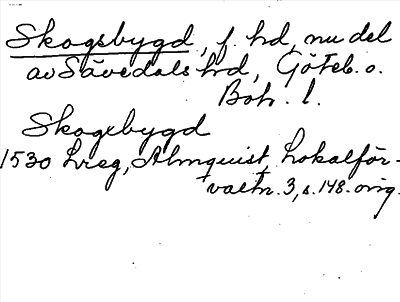 Skogsbygd, f. hd, nu del
av Sävedals hd, Göteb. o.
Boh. l.
Skogebygd
1530 Lreg, Almquist, Lokalför-
valtn. 3, s. 148. orig.